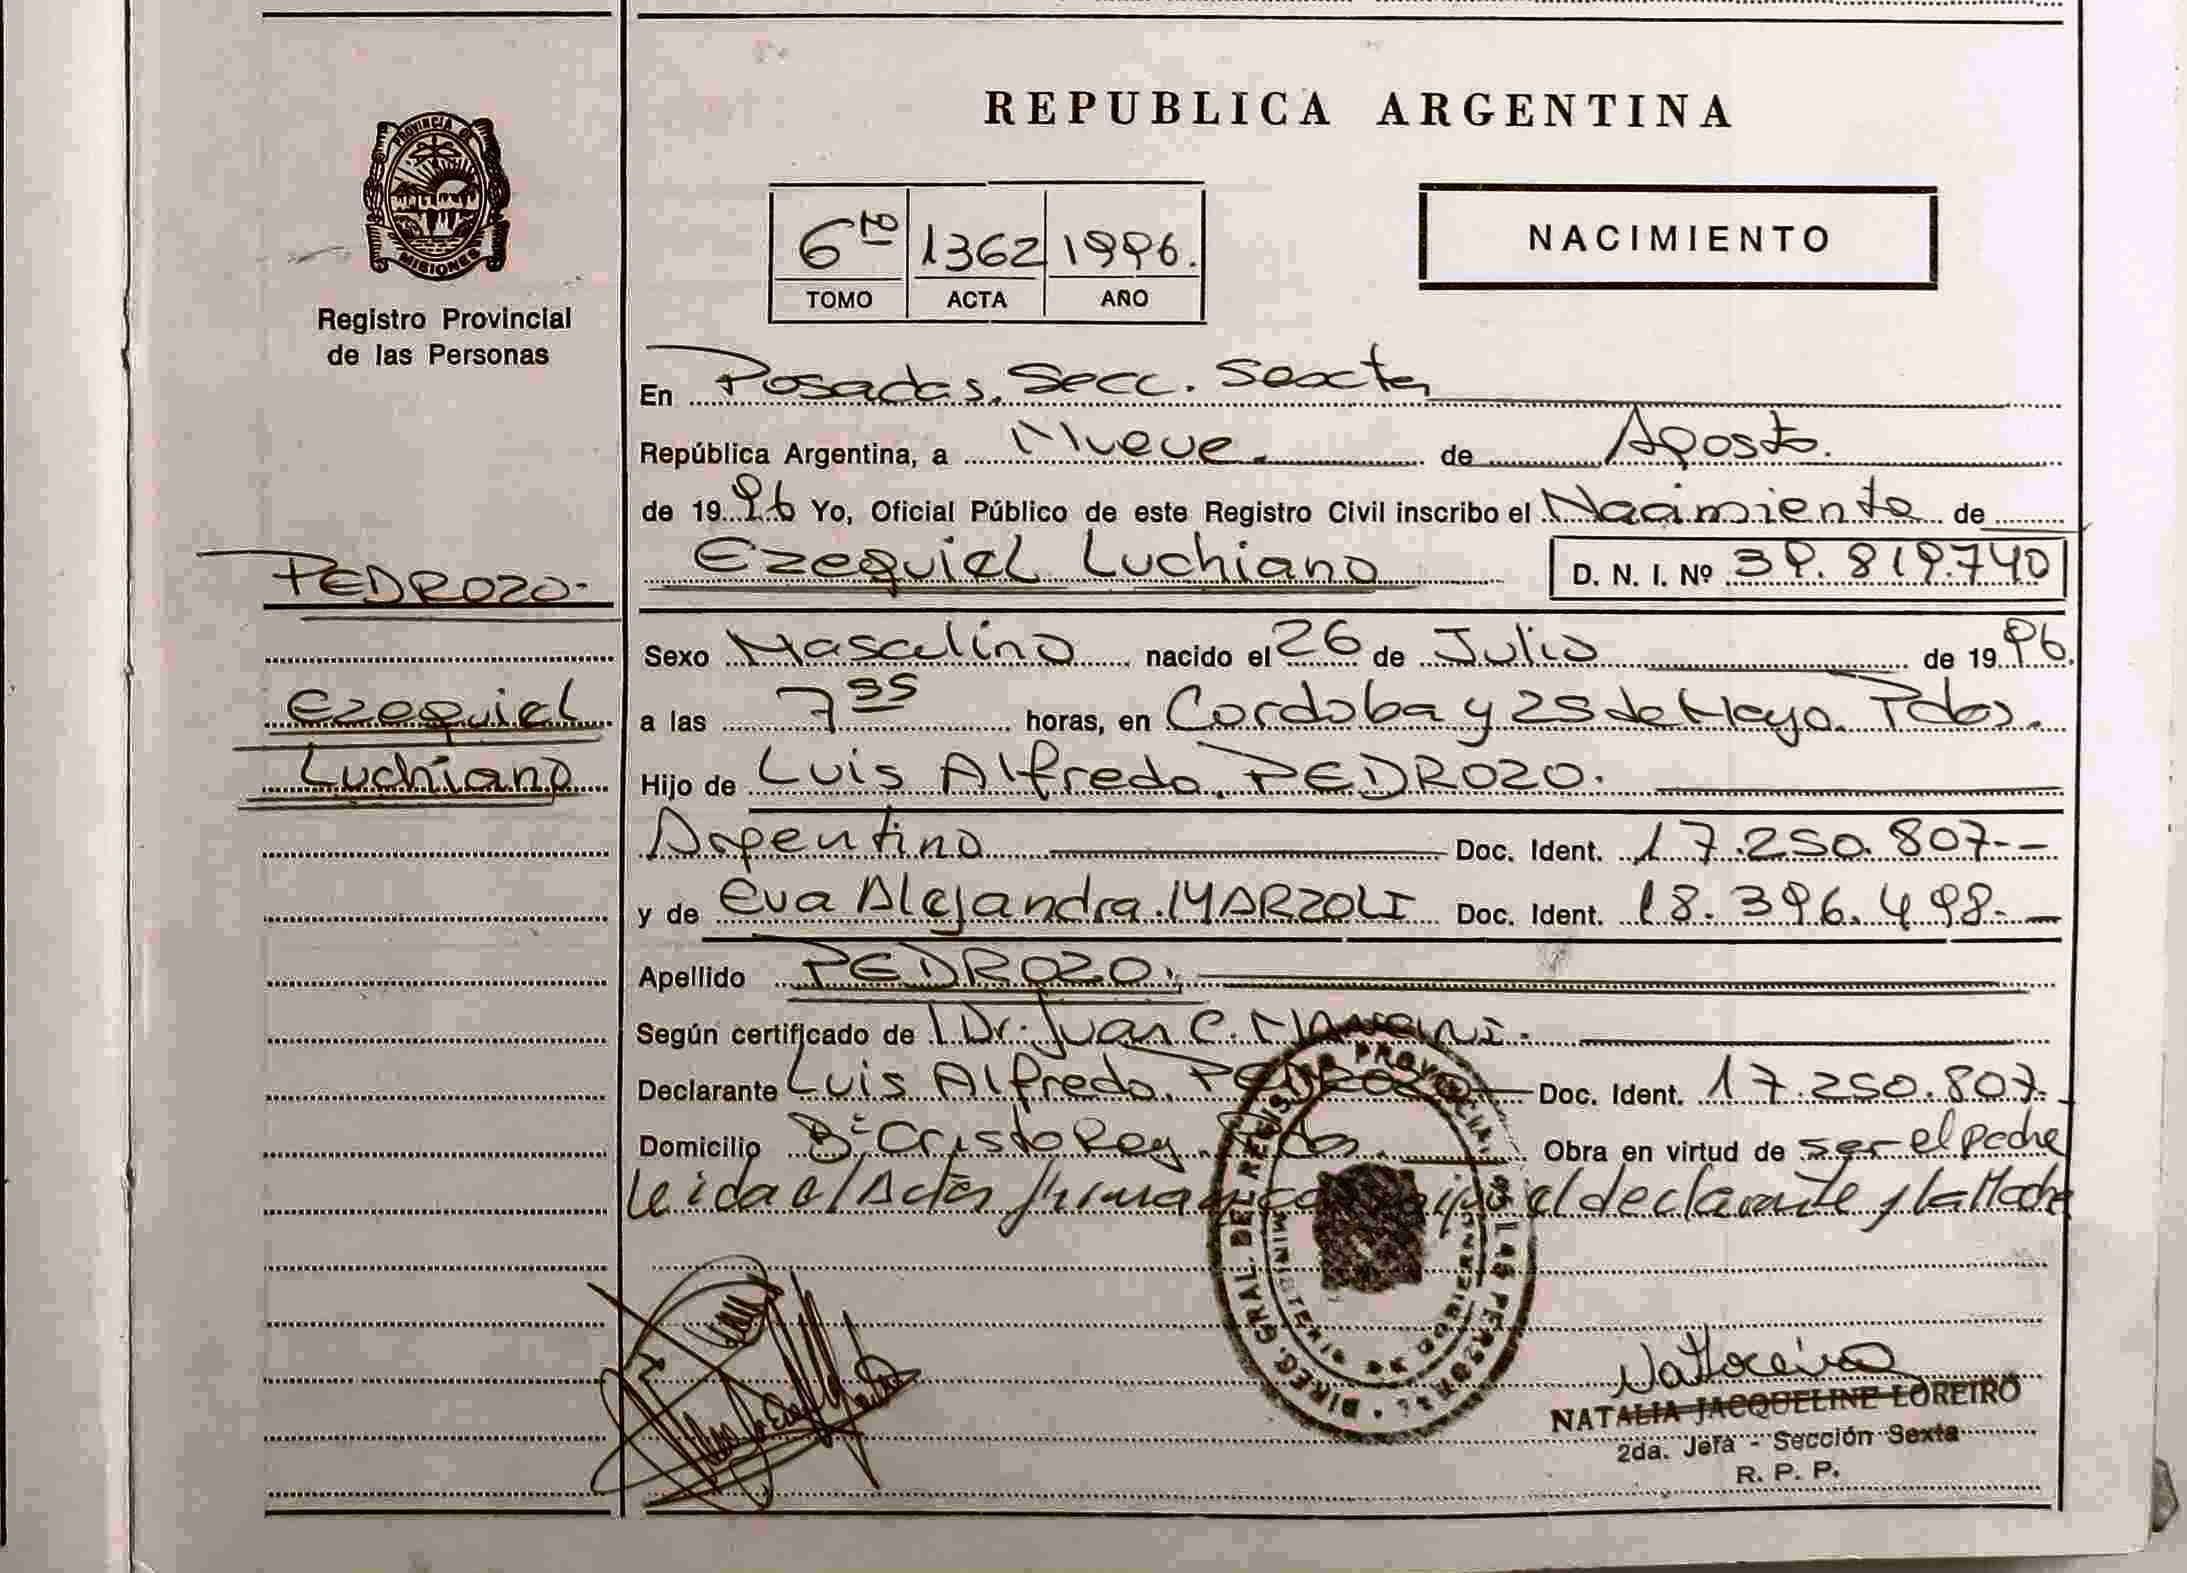 REPUBLICA ARGENTINA
PROVINCIA DE
MISIONES
Registro Provincial
de las Personas
6to 1362 1996.
TOMO ACTA AÑO
NACIMIENTO
En Posadas. Secc. Sexta
República Argentina, a Nueve. de Agosto.
de 1996 Yo, Oficial Público de este Registro Civil inscribo el Nacimiento de
Ezequiel Luchiano D. N. I. Nº 39.819.740
PEDROZO.
Ezequiel
Luchiano
Sexo Masculino nacido el 26 de Julio de 1996.
a las 7 35 horas, en Cordoba y 25 de Mayo. Pdas.
Hijo de Luis Alfredo. PEDROZO.
Argentino Doc. Ident. 17.250.807.-
y de Eva Alejandra. MARZOLI Doc. Ident. 18.396.498.-
Apellido PEDROZO.
Según certificado de Dr. Juan C.
Declarante Luis Alfredo. PEDROZO Doc. Ident. 17.250.807.-
Domicilio Bº Cristo Rey. Pdas. Obra en virtud de ser el padre
leida el Acta firman el declarante y la Madre
DIREC. GRAL. DEL REGISTRO PROVINCIAL DE LAS PERSONAS
MINISTERIO DE GOBIERNO
NATALIA JACQUELINE LOREIRO
2da. Jefa - Sección Sexta
R. P. P.